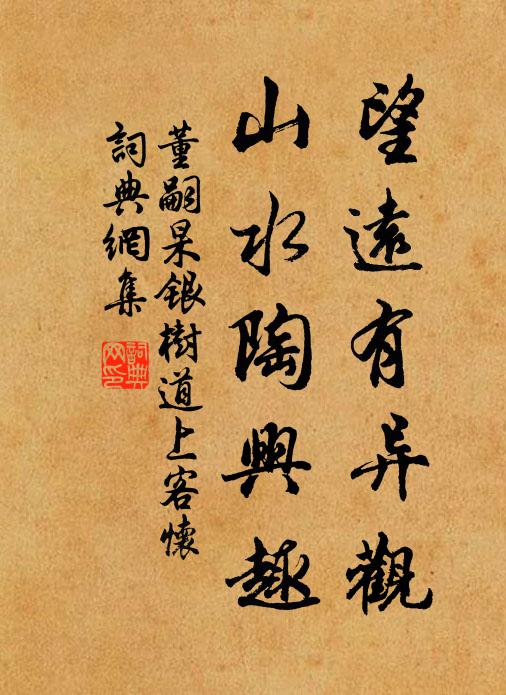 望遠有异觀
山水陶興趣
董嗣杲銀樹道上客懷
詞典網集
詞典網印